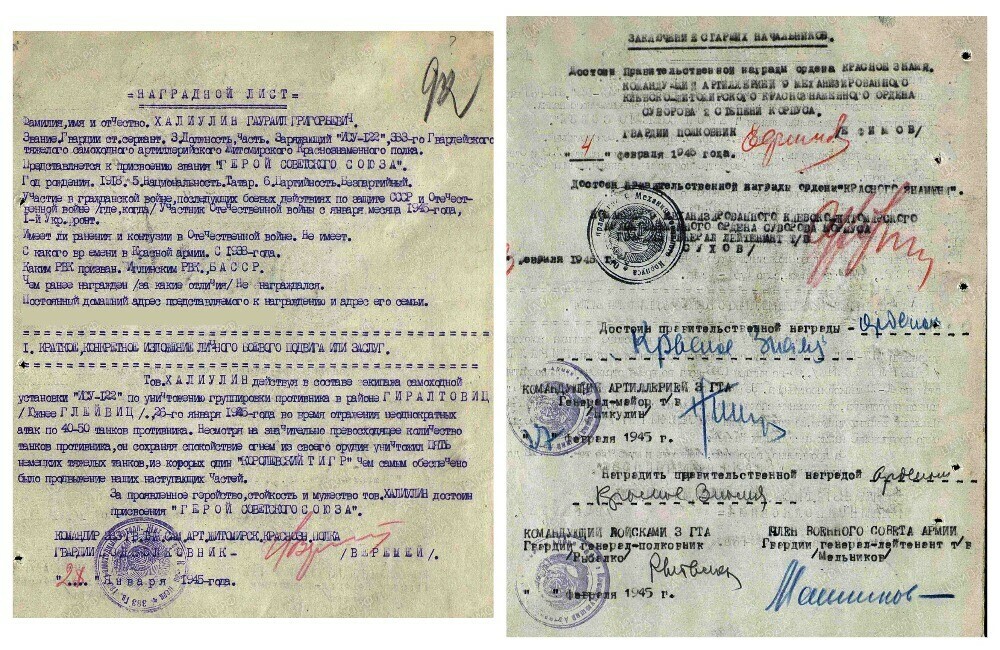 932
=НАГРАДНОЙ ЛИСТ=
Фамилия, имя и отчество. ХАЛИУЛИН ГАУРАИЛ ГРИГОРЬЕВИЧ.
Звание. Гвардии ст. сержант. 3. Должность, часть. Заряжающий "ИСУ-122", 383-го Гвардейского
тяжелого самоходного артиллерийского Житомирского Краснознаменного полка.
Представляется к присвоению звания "ГЕРОЙ СОВЕТСКОГО СОЮЗА".
Год рождения. 1916. 5. Национальность. Татар. 6. Партийность. Беспартийный.
Участие в гражданской войне, последующих боевых действиях по защите СССР и Отечест-
венной войне /где, когда/ Участник Отечественной войны с января месяца 1945-года,
I-й Укр. фронт.
Имеет ли ранения и контузии в Отечественной войне. Не имеет.
С какого времени в Красной армии. С 1938-года.
Каким РВК призван. Иглинским РВК., БАССР.
Чем ранее награжден /за какие отличия/ Не награждался.
Постоянный домашний адрес представляемого к награждению и адрес его семьи.
I. КРАТКОЕ, КОНКРЕТНОЕ ИЗЛОЖЕНИЕ ЛИЧНОГО БОЕВОГО ПОДВИГА ИЛИ ЗАСЛУГ.
Тов. ХАЛИУЛИН действуя в составе экипажа самоходной
установки "ИСУ-122" по уничтожению группировки противника в районе ГИРАЛТОВИЦ
/Южнее ГЛЕЙВИЦ/., 26-го января 1945-года во время отражения неоднократных
атак по 40-50 танков противника. Несмотря на значительно превосходящее количество
танков противника, он сохраняя спокойствие огнем из своего орудия уничтожил ПЯТЬ
немецких тяжелых танков, из которых один "КОРОЛЕВСКИЙ ТИГР" Чем самым обеспечено
было продвижение наших наступающих частей.
За проявленное геройство, стойкость и мужество тов. ХАЛИУЛИН достоин
присвоения "ГЕРОЙ СОВЕТСКОГО СОЮЗА".
КОМАНДИР 383 ГВ. ТЯЖ. САМ. АРТ. ЖИТОМИРСК. КРАСНОЗН. ПОЛКА
ГВАРДИИ ПОДПОЛКОВНИК- /ВЕРЕМЕЙ/.
"28" Января 1945-года.
ЗАКЛЮЧЕНИЕ СТАРШИХ НАЧАЛЬНИКОВ.
Достоин Правительственной награды ордена КРАСНОЕ ЗНАМЯ.
КОМАНДУЮЩИЙ АРТИЛЛЕРИЕЙ 9 МЕХАНИЗИРОВАННОГО
КИЕВСКО-ЖИТОМИРСКОГО КРАСНОЗНАМЕННОГО ОРДЕНА
СУВОРОВА 2 СТЕПЕНИ КОРПУСА.
ГВАРДИИ ПОЛКОВНИК /ЕФИМОВ/
"4" февраля 1945 года.
Достоин Правительственной награды ордена "КРАСНОГО ЗНАМЕНИ".
МЕХАНИЗИРОВАННОГО КИЕВСКО-ЖИТОМИРСКОГО
ОРДЕНА СУВОРОВА КОРПУСА
ГЕНЕРАЛ ЛЕЙТЕНАНТ Т/В
/СУХОВ/
февраля 1945
Достоин правительственной награды - Орденом
Красное Знамя
КОМАНДУЮЩИЙ АРТИЛЛЕРИЕЙ 3 ГТА
Генерал-майор т/в
/Шикулин/
февраля 1945 г.
Наградить правительственной наградой Орденом
Красное Знамя
КОМАНДУЮЩИЙ ВОЙСКАМИ 3 ГТА
Гвардии генерал-полковник
/Рыбалко/
ЧЛЕН ВОЕННОГО СОВЕТА АРМИИ
Гвардии генерал-лейтенант т/в
/Мельников/
" " февраля 1945 г.